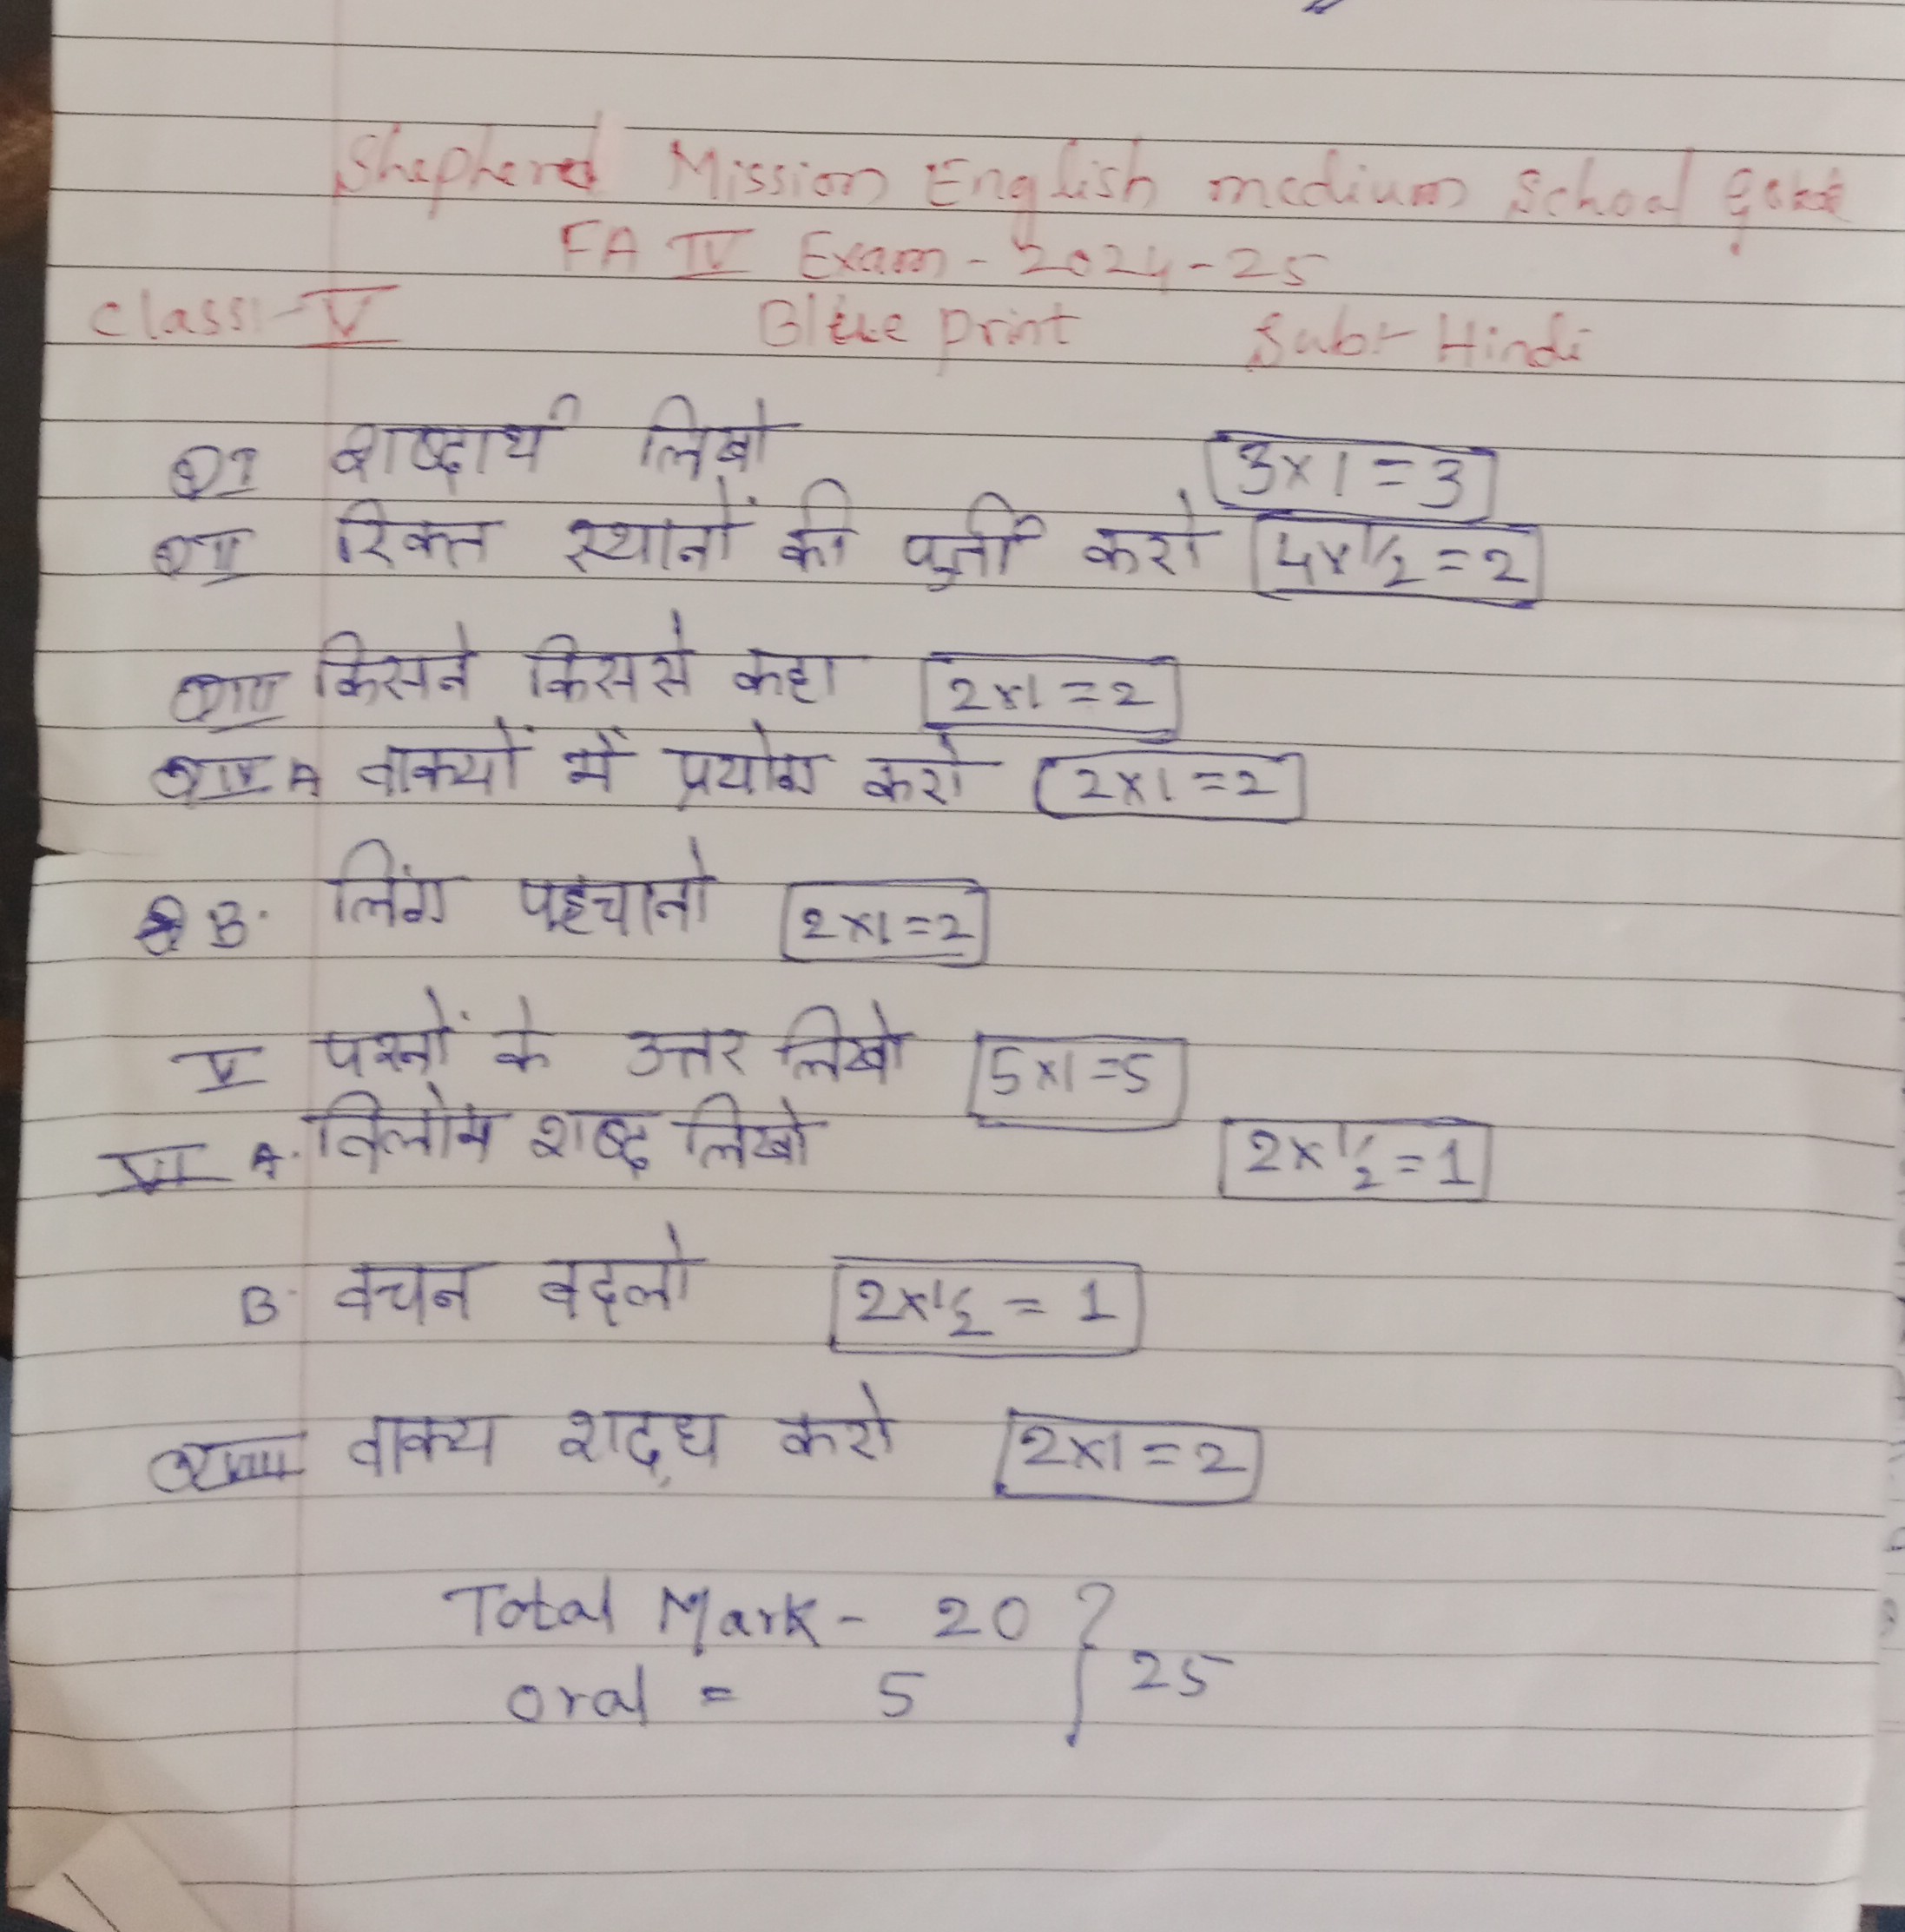 Shepherd Mission English medium School
FA IV Exam - 2024-25
Class:- V Blue print Sub:- Hindi
Q I शब्दार्थ लिखो 3x1=3
Q II रिक्त स्थानों की पुर्ती करो 4x1/2=2
Q III किसने किससे कहा 2x1=2
Q IV A वाक्यों में प्रयोग करो 2x1=2
B. लिंग पहचानो 2x1=2
V प्रश्नों के उत्तर लिखो 5x1=5
VI A. विलोम शब्द लिखो 2x1/2=1
B. वचन बदलो 2x1/2=1
वाक्य शुद्ध करो 2x1=2
Total Mark - 20
25
oral = 5